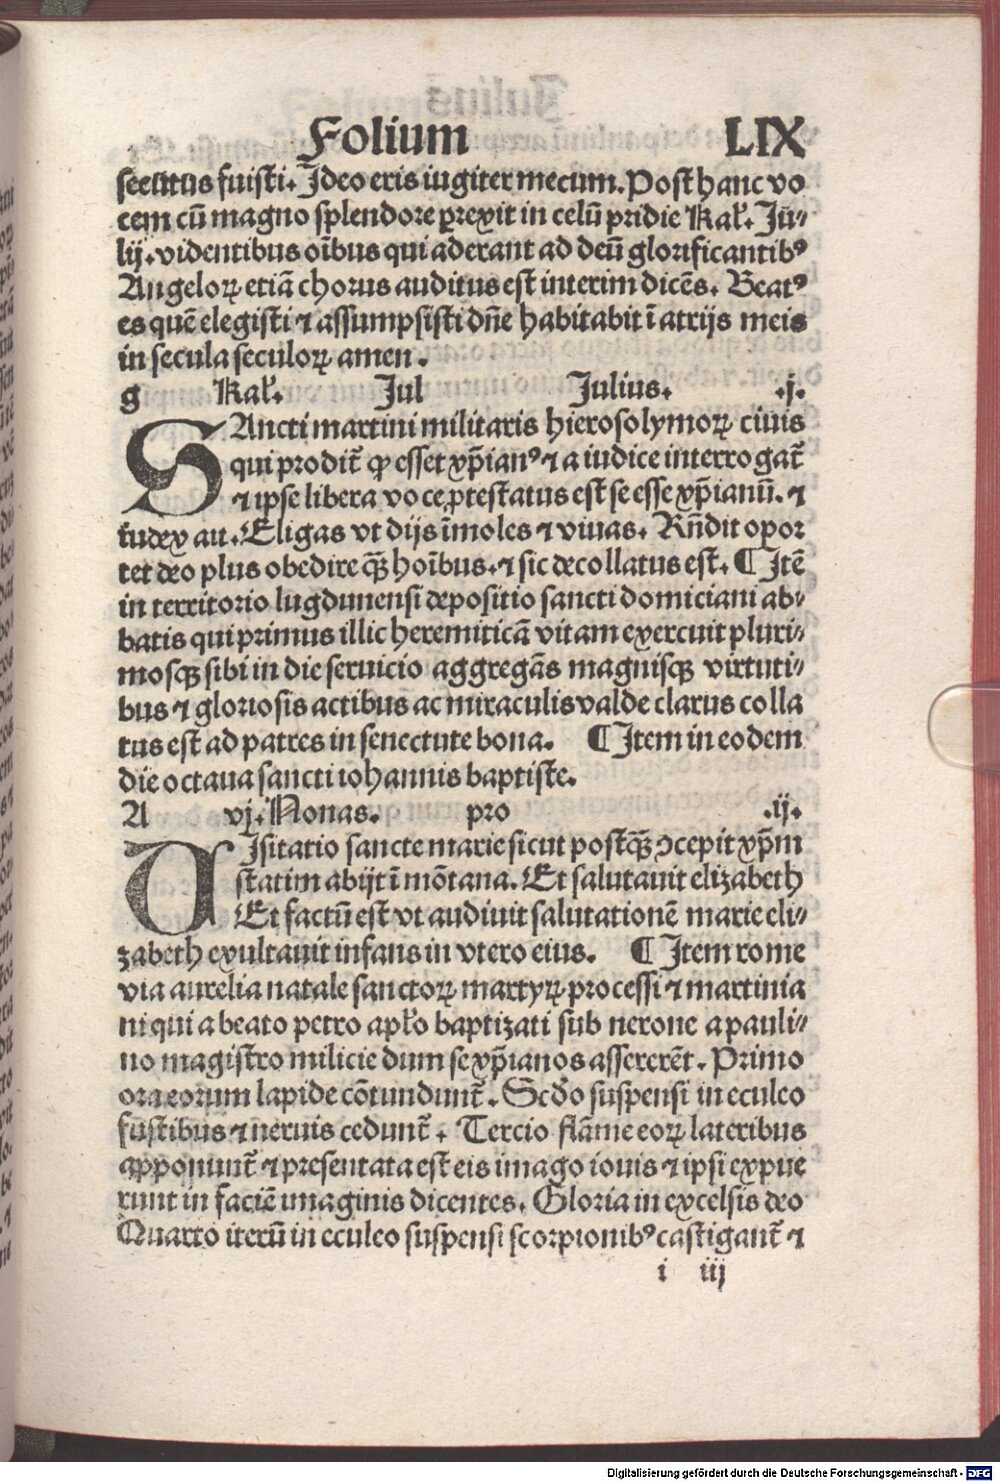 Folium LIX
secutus fuisti. Ideo eris iugiter mecum. Post hanc vo
cem cū magno splendore ꝑrexit in celū pridie Kał. Ju⸗
lij. videntibus oībus qui aderant ad deū glorificantibꝰ
Angeloꝝ etiā chorus auditus est interim dicēs. Beatꝰ
es quē elegisti ⁊ assumpsisti dn̄e habitabit ī atrijs meis
in secula seculoꝝ amen.
g Kał. Jul Julius. .j.
SAncti martini militaris hierosolymoꝝ ciuis
qui prodit̄ ꝙ esset xp̄ianꝰ ⁊ a iudice interrogat̄
⁊ ipse libera voce ꝓtestatus est se esse xp̄ianū. ⁊
iudex ait. Eligas vt dijs īmoles ⁊ viuas. Rn̄dit opor
tet deo plus obedire qꝫ̄ hoībus. ⁊ sic decollatus est. ¶ Itē
in territorio lugdunensi depositio sancti domiciani ab⸗
batis qui primus illic heremiticā vitam exercuit pluri⸗
mosqꝫ sibi in die seruicio aggregās magnisqꝫ virtuti⸗
bus ⁊ gloriosis actibus ac miraculis valde clarus colla
tus est ad patres in senectute bona. ¶ Item in eodem
die octaua sancti iohannis baptiste.
A vj. Nonas. pro .ij.
VIsitatio sancte marie sicut postqꝫ̄ ↄcepit xp̄m
statim abijt ī mōtana. Et salutauit elizabeth
Et factū est vt audiuit salutationē marie eli⸗
zabeth exultauit infans in vtero eius. ¶ Item rome
via aurelia natale sanctoꝝ martyꝝ processi ⁊ martinia
ni qui a beato petro apło baptizati sub nerone a pauli⸗
no magistro milicie dum se xp̄ianos assererēt. Primo
ora eorum lapide cōtundunt̄. Scd̄o suspensi in eculeo
fustibus ⁊ neruis cedunt̄. Tercio flāme eoꝝ lateribus
apponunt̄ ⁊ presentata est eis imago iouis ⁊ ipsi expue
runt in faciē imaginis dicentes. Gloria in excelsis deo
Quarto iterū in eculeo suspensi scorpionibꝰ castigant̄ ⁊
i iij
Digitalisierung gefördert durch die Deutsche Forschungsgemeinschaft - DFG